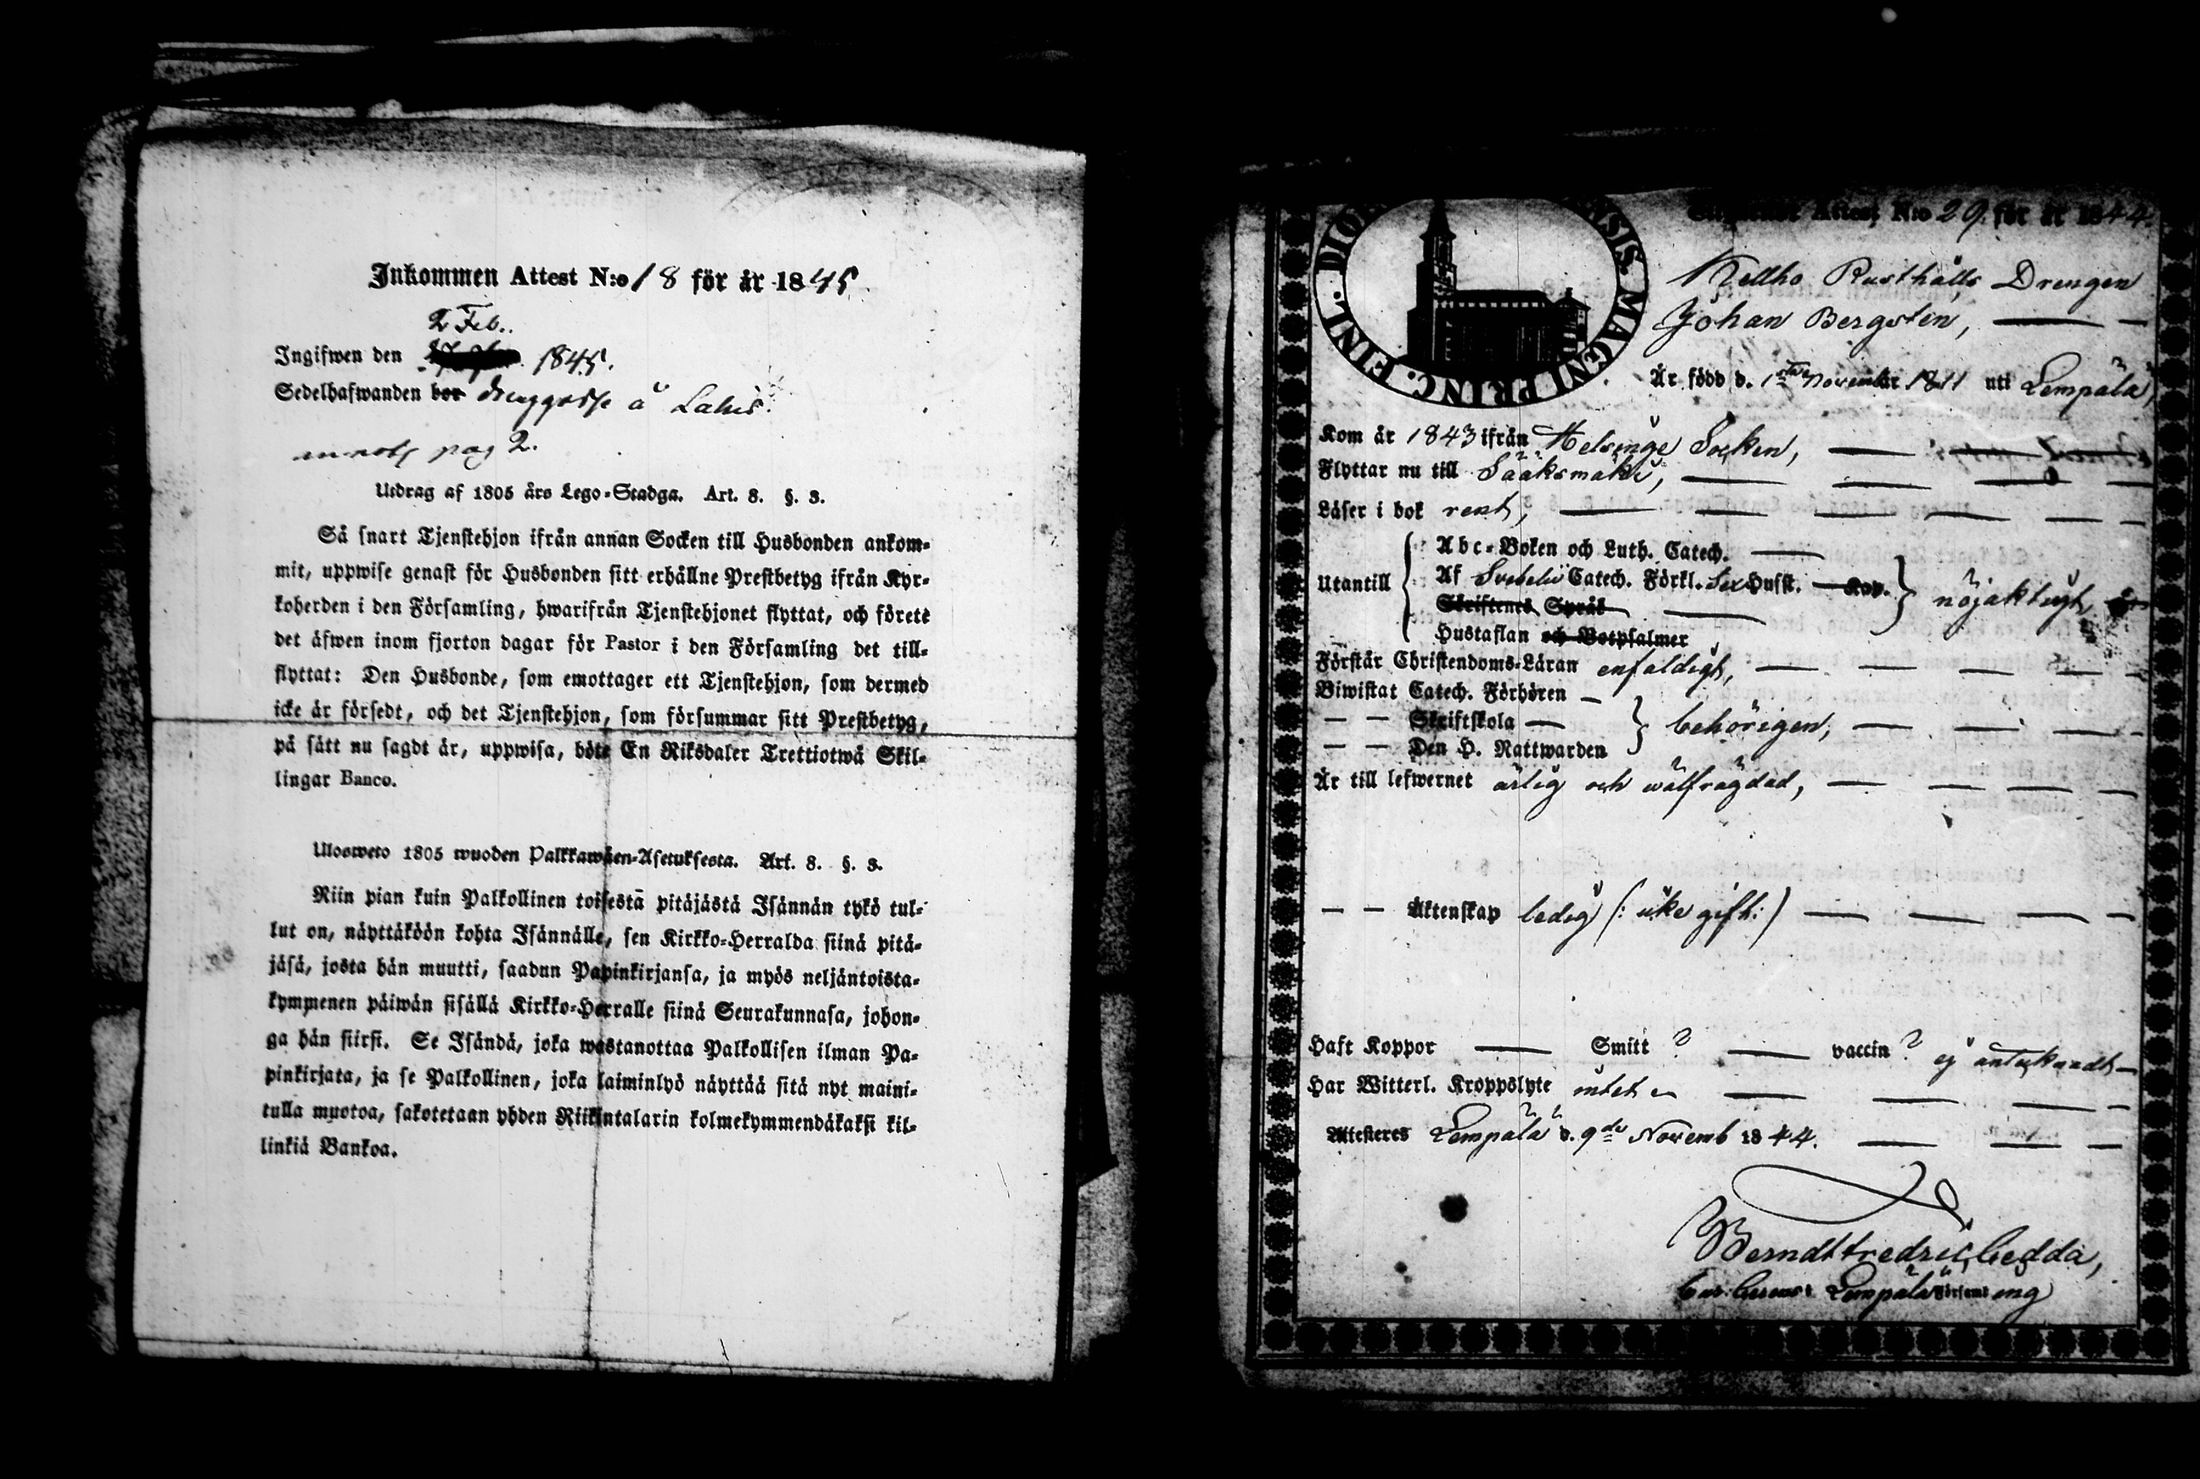 Inkommen Attest N:o 18 för år 1845
2 Feb.
Ingifwen den 1845.
Sedelhafwanden bor drenggosse å Lahis.
pag 2.
Utdrag af 1805 års Lego-Stadga. Art. 8. §. 3.
Så snart Tjenstehjon ifrån annan Socken till Husbonden ankom-
mit, uppwise genast för Husbonden sitt erhållne Prestbetyg ifrån Kyr-
koherden i den Församling, hwarifrån Tjenstehjonet flyttat, och förete
det äfwen inom fjorton dagar för Pastor i den Församling det till-
flyttat: Den Husbonde, som emottager ett Tjenstehjon, som dermed
icke är försedt, och det Tjenstehjon, som försummar sitt Prestbetyg,
på sätt nu sagdt är, uppwisa, böte En Riksdaler Trettiotwå Skil-
lingar Banco.
Ulosweto 1805 wuoden Palkkawäen-Asetuksesta. Art. 8. §. 3.
Niin pian kuin Palkollinen toisesta pitäjästä Isännän tykö tul-
lut on, näyttäköön kohta Isännälle, sen Kirkko-Herralda siinä pitä-
jäsä, josta hän muutti, saadun Papinkirjansa, ja myös neljäntoista-
kymmenen päiwän sisällä Kirkko-Herralle siinä Seurakunnasa, johon-
ga hän siirsi. Se Isändä, joka wastanottaa Palkollisen ilman Pa-
pinkirjata, ja se Palkollinen, joka laiminlyö näyttää sitä nyt maini-
tulla muotoa, sakotetaan yhden Riikintalarin kolmekymmendäkaksi kil-
linkiä Bankoa.
Attest N:o 29. för år 1844.
SIS. MAGNI PRINC. FINL. DIO
Rusthålls Drengen
Johan Bergsten,
Är född d. 1sta November 1811 uti Lempälä,
Kom år 1843 ifrån Helsinge Socken,
Flyttar nu till Sääksmäki,
Läser i bok rent,
Utantill
Abc-Boken och Luth. Catech.
Af Svebelii Catech. Förkl. Husst. Kap.
Skriftenes Språk
Hustaflan och Botpsalmer
nöjaktigt,
Förstår Christendoms-Läran enfaldigt,
Biwistat Catech. Förhören
— — Skriftskola —
— — Den H. Nattwarden
behörigen,
Är till lefwernet ärlig och wälfrägdad,
— — Äktenskap ledig (: icke gift :)
Haft Koppor — Smitt ? — vaccin ? ej anteknadt —
Har Witterl. Kroppslyte intet
Attesteres Lempälä d. 9de Novemb 1844.
Berndt Fredric Gedda,
Lempälä Församling